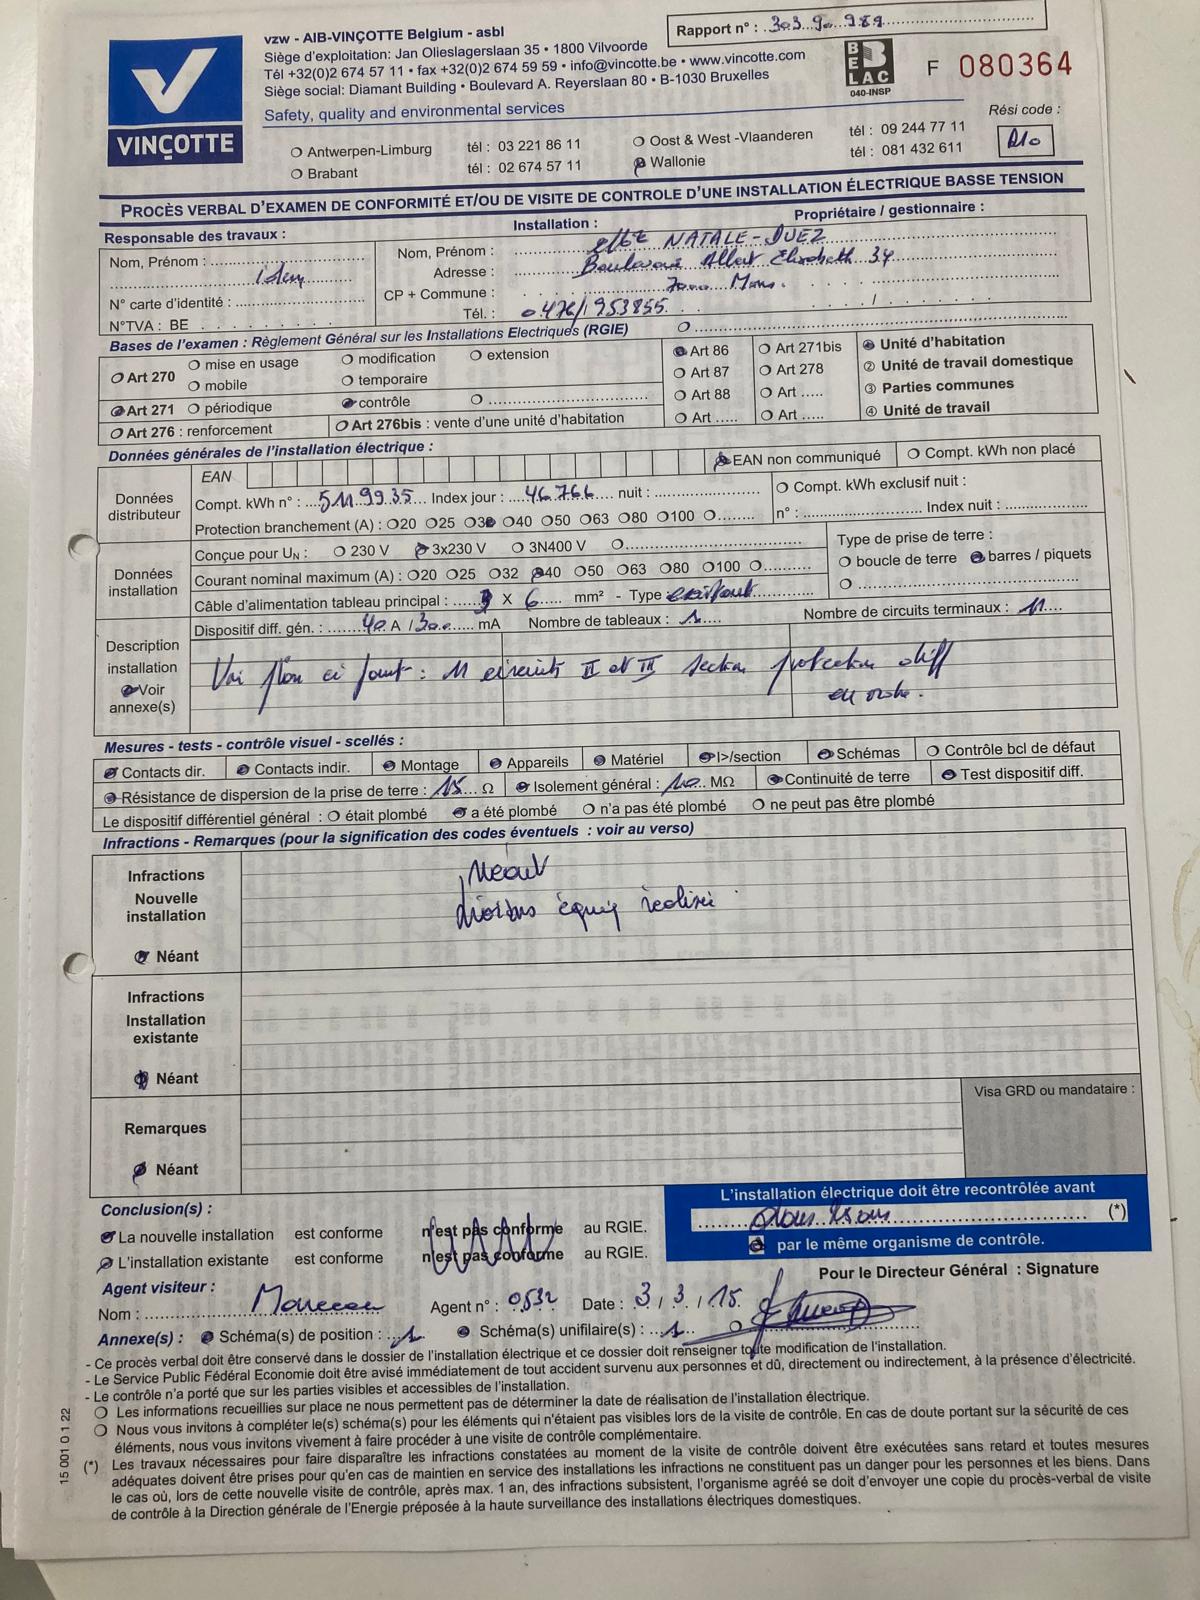 Rapport n° : 303 90 989
vzw - AIB-VINÇOTTE Belgium - asbl
Siège d'exploitation: Jan Olieslagerslaan 35 • 1800 Vilvoorde
Tél +32(0)2 674 57 11 • fax +32(0)2 674 59 59 • info@vincotte.be • www.vincotte.com
Siège social: Diamant Building • Boulevard A. Reyerslaan 80 • B-1030 Bruxelles
BELAC
040-INSP
F 080364
Safety, quality and environmental services
VINÇOTTE
Rési code :
Antwerpen-Limburg tél : 03 221 86 11 Oost & West -Vlaanderen tél : 09 244 77 11
Brabant tél : 02 674 57 11 Wallonie tél : 081 432 611
PROCÈS VERBAL D'EXAMEN DE CONFORMITÉ ET/OU DE VISITE DE CONTROLE D'UNE INSTALLATION ÉLECTRIQUE BASSE TENSION
Responsable des travaux : Installation : Propriétaire / gestionnaire :
Nom, Prénom : idem
N° carte d'identité :
N°TVA : BE
Nom, Prénom : NATALE-DUEZ
Adresse : Boulevard Albert Elisabeth 34
CP + Commune : 7000 Mons.
Tél. : 0476/953855
Bases de l'examen : Règlement Général sur les Installations Electriques (RGIE)
Art 270 mise en usage modification extension
mobile temporaire
Art 271 périodique contrôle
Art 276 : renforcement Art 276bis : vente d'une unité d'habitation
Art 86 Art 271bis
Art 87 Art 278
Art 88 Art .....
Art ..... Art .....
Unité d'habitation
② Unité de travail domestique
③ Parties communes
④ Unité de travail
Données générales de l'installation électrique :
Données distributeur
EAN EAN non communiqué Compt. kWh non placé
Compt. kWh n° : 5119935 Index jour : 46766 nuit :
Compt. kWh exclusif nuit :
n° : Index nuit :
Protection branchement (A) : 20 25 32 40 50 63 80 100
Données installation
Conçue pour UN : 230 V 3x230 V 3N400 V
Type de prise de terre :
boucle de terre barres / piquets
Courant nominal maximum (A) : 20 25 32 40 50 63 80 100
Câble d'alimentation tableau principal : 3 X 6 mm² - Type existant
Description installation
Voir annexe(s)
Dispositif diff. gén. : 40 A / 300 mA Nombre de tableaux : 1 Nombre de circuits terminaux : 11
Voir plan ci joint : 11 circuits II et III section protection diff
en ordre.
Mesures - tests - contrôle visuel - scellés :
Contacts dir. Contacts indir. Montage Appareils Matériel I>/section Schémas Contrôle bcl de défaut
Résistance de dispersion de la prise de terre : 15 Ω Isolement général : 10 MΩ Continuité de terre Test dispositif diff.
Le dispositif différentiel général : était plombé a été plombé n'a pas été plombé ne peut pas être plombé
Infractions - Remarques (pour la signification des codes éventuels : voir au verso)
Infractions
Nouvelle
installation
Néant
Néant
liaisons équip réalisée
Infractions
Installation
existante
Néant
Remarques
Néant
Visa GRD ou mandataire :
Conclusion(s) :
La nouvelle installation est conforme n'est pas conforme au RGIE.
L'installation existante est conforme n'est pas conforme au RGIE.
L'installation électrique doit être recontrôlée avant
(*)
par le même organisme de contrôle.
Agent visiteur : Pour le Directeur Général : Signature
Nom : Agent n° : 0532 Date : 3 / 3 / 15
Annexe(s) : Schéma(s) de position : 1 Schéma(s) unifilaire(s) : 1
- Ce procès verbal doit être conservé dans le dossier de l'installation électrique et ce dossier doit renseigner toute modification de l'installation.
- Le Service Public Fédéral Economie doit être avisé immédiatement de tout accident survenu aux personnes et dû, directement ou indirectement, à la présence d'électricité.
- Le contrôle n'a porté que sur les parties visibles et accessibles de l'installation.
Les informations recueillies sur place ne nous permettent pas de déterminer la date de réalisation de l'installation électrique.
Nous vous invitons à compléter le(s) schéma(s) pour les éléments qui n'étaient pas visibles lors de la visite de contrôle. En cas de doute portant sur la sécurité de ces
éléments, nous vous invitons vivement à faire procéder à une visite de contrôle complémentaire.
(*) Les travaux nécessaires pour faire disparaître les infractions constatées au moment de la visite de contrôle doivent être exécutées sans retard et toutes mesures
adéquates doivent être prises pour qu'en cas de maintien en service des installations les infractions ne constituent pas un danger pour les personnes et les biens. Dans
le cas où, lors de cette nouvelle visite de contrôle, après max. 1 an, des infractions subsistent, l'organisme agréé se doit d'envoyer une copie du procès-verbal de visite
de contrôle à la Direction générale de l'Energie préposée à la haute surveillance des installations électriques domestiques.
15 001 0 1 22